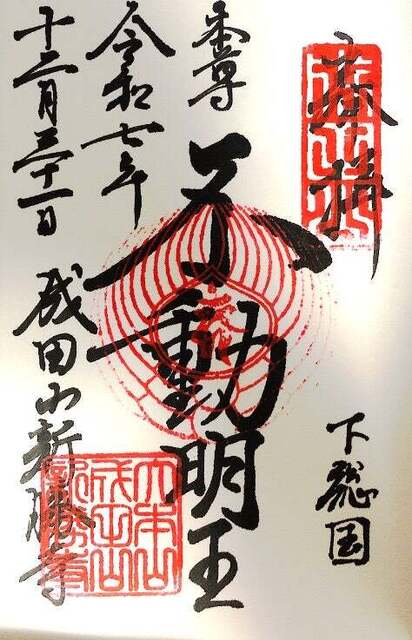 奉拝
下総国
本尊
不動明王
令和七年
十二月三十一日
成田山新勝寺
大本山成田山新勝寺